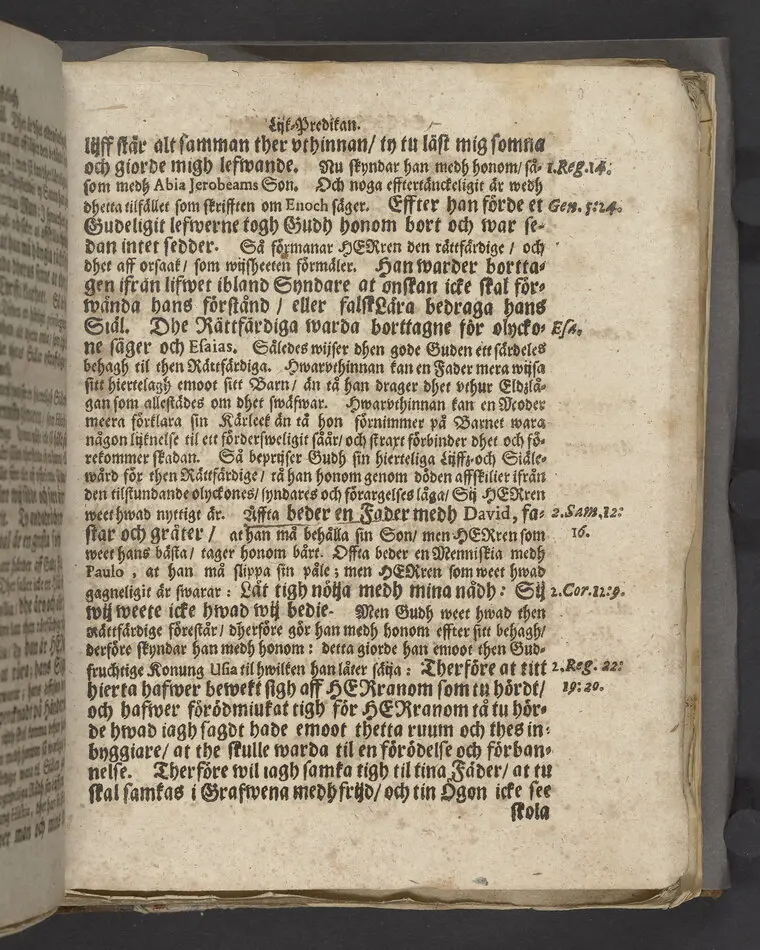 Lijk-Predikan.
lijff står alt samman ther vthinnan/ ty tu läst mig somna
och giorde migh lefwande. Nu skyndar han medh honom/ så- 1. Reg. 14.
som medh Abia Jerobeams Son. Och noga efftertänckeligit är wedh
dhetta tilfället som skrifften om Enoch säger. Effter han förde et Gen. 5:24.
Gudeligit lefwerne togh Gudh honom bort och war se-
dan intet sedder. Så förmanar HERren den rättfärdige / och
dhet aff orsaak/ som wijsheeten förmäler. Han warder bortta-
gen ifrån lifwet ibland Syndare at onskan icke skal för-
wända hans förstånd / eller falsk Lära bedraga hans
Siäl. Dhe Rättfärdiga warda borttagne för olycko- Esa.
ne säger och Esaias. Således wijser dhen gode Guden ett särdeles
behagh til then Rättfärdiga. Hwarvthinnan kan en Fader mera wijsa
sitt hiertelagh emoot sitt Barn/ än tå han drager dhet vthur Eldzlå-
gan som allestådes om dhet swäfwar. Hwarvthinnan kan en Moder
meera förklara sin Kärleek än tå hon förnimmer på Barnet wara
någon lijknelse til ett förderfweligit såår/ och straxt förbinder dhet och fö-
rekommer skadan. Så beprijser Gudh sin hierteliga Lijffz-och Siäle-
wård för then Rättfärdige/ tå han honom genom döden affskilier ifrån
den tilstundande olyckones/ syndares och förargelses låga/ Sij HERren
weet hwad nyttigt är. Affta beder en Fader medh David, fa- 2. Sam. 12:
star och gräter / at han må behålla sin Son/ men HERren som 16.
weet hans bästa/ tager honom bårt. Offta beder en Menniskia medh
Paulo , at han må slippa sin påle; men HERren som weet hwad
gagneligit är swarar: Låt tigh nöija medh mina nådh: Sij 2. Cor. 12:9.
wij weete icke hwad wij bedie. Men Gudh weet hwad then
rättfärdige förestår/ dherföre gör han medh honom effter sitt behagh/
derföre skyndar han medh honom: detta giorde han emoot then Gud-
fruchtige Konung Usia til hwilken han låter säija: Therföre at titt 2. Reg. 22:
hierta hafwer bewekt sigh aff HERranom som tu hördt/ 19:20.
och hafwer förödmiukat tigh för HERranom tå tu hör-
de hwad iagh sagdt hade emoot thetta ruum och thes in-
byggiare/ at the skulle warda til en förödelse och förban-
nelse. Therföre wil iagh samka tigh til tina Fäder/ at tu
skal samkas i Grafwena medh frijd/ och tin Ögon icke see
skola